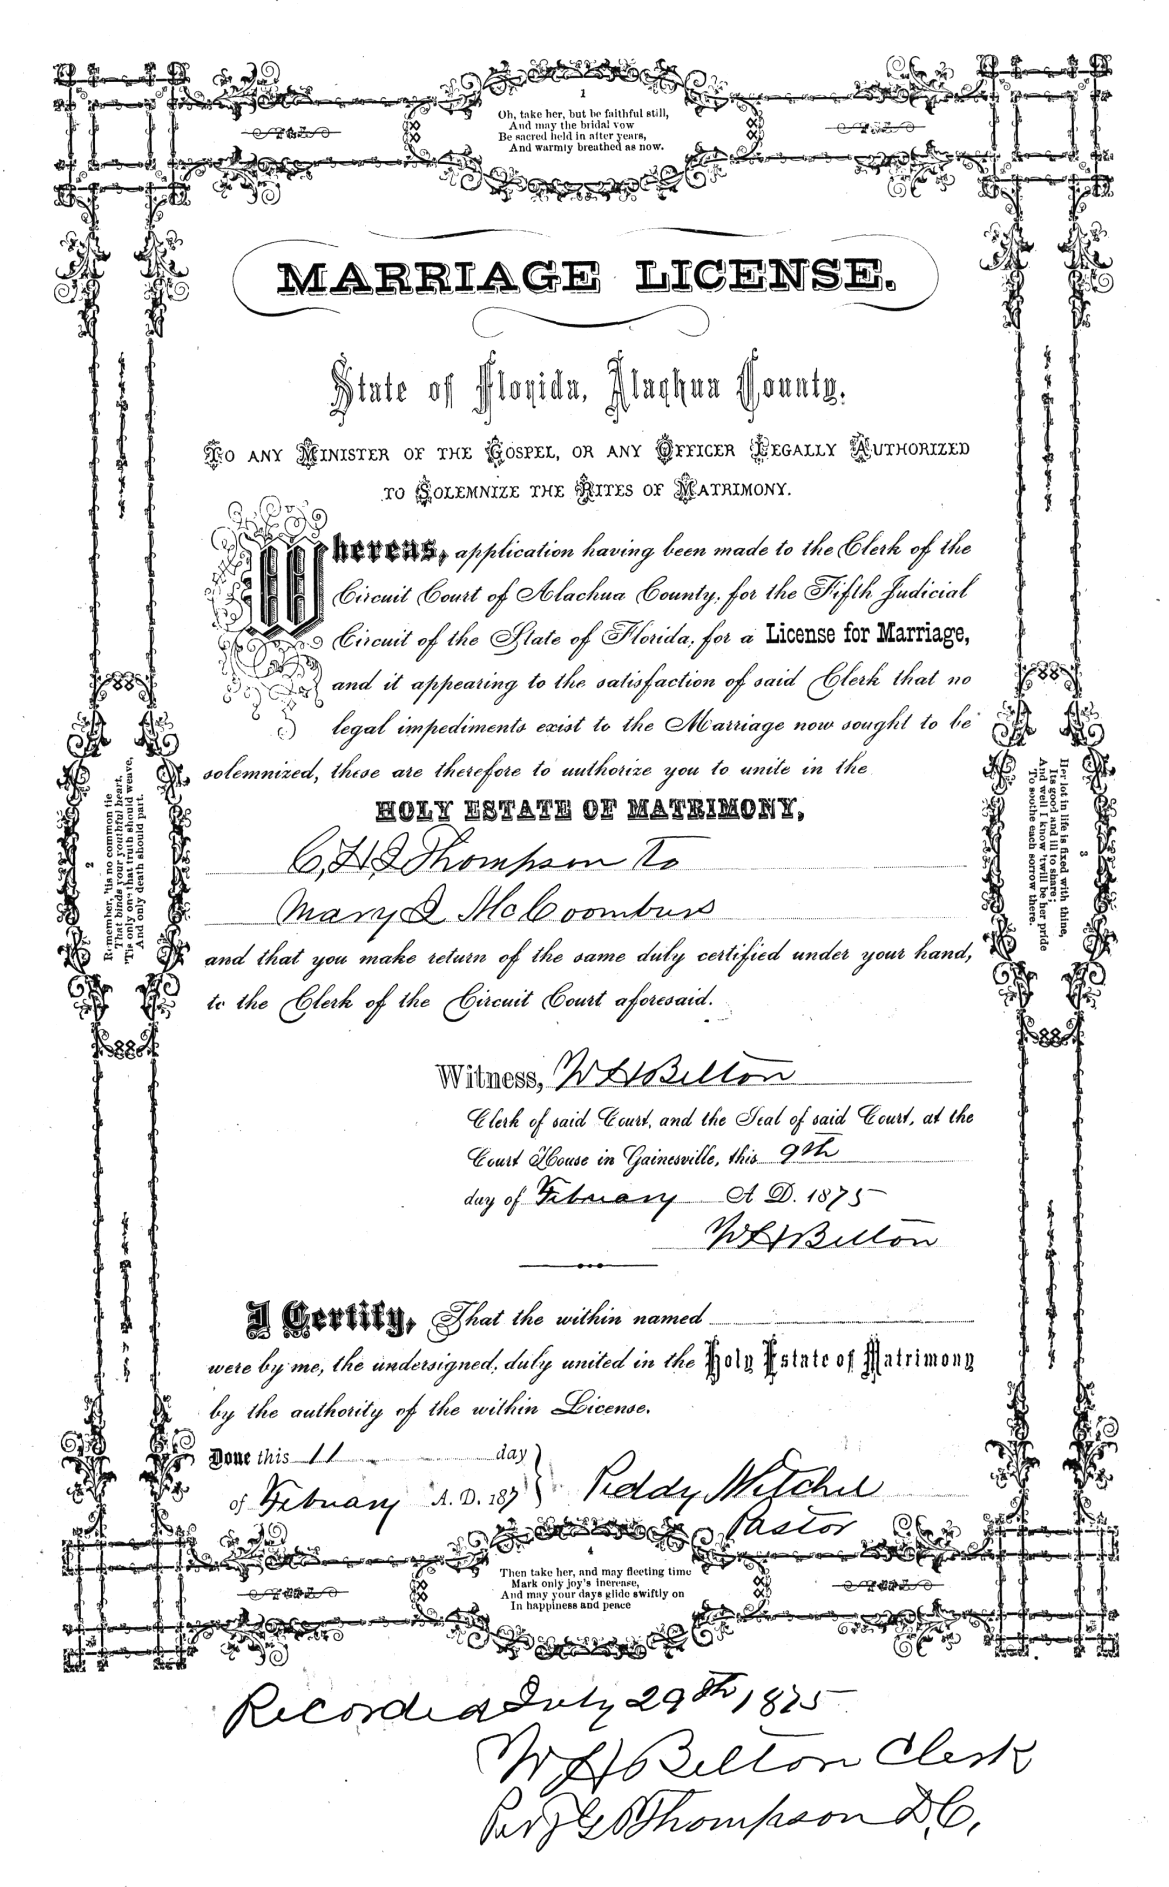 1
Oh, take her, but be faithful still,
And may the bridal vow
Be sacred held in after years,
And warmly breathed as now.
MARRIAGE LICENSE.
State of Florida, Alachua County.
TO ANY MINISTER OF THE GOSPEL, OR ANY OFFICER LEGALLY AUTHORIZED
TO SOLEMNIZE THE RITES OF MATRIMONY.
Whereas, application having been made to the Clerk of the
Circuit Court of Alachua County, for the Fifth Judicial
Circuit of the State of Florida, for a License for Marriage,
and it appearing to the satisfaction of said Clerk that no
legal impediments exist to the Marriage now sought to be
solemnized, these are therefore to authorize you to unite in the
HOLY ESTATE OF MATRIMONY,
C, H, J Thompson To
Mary J McCoombers
and that you make return of the same duly certified under your hand,
to the Clerk of the Circuit Court aforesaid.
2
Remember, 'tis no common tie
That binds your youthful heart,
'Tis only one that truth should weave,
And only death should part.
3
Her lot in life is fixed with thine,
Its good and ill to share;
And well I know 'twill be her pride
To soothe each sorrow there.
Witness, W H Belton
Clerk of said Court, and the Seal of said Court, at the
Court House in Gainesville, this 9th
day of February A D. 1875
W H Belton
I Certify, That the within named
were by me, the undersigned, duly united in the Holy Estate of Matrimony
by the authority of the within License.
Done this 11 day
of February A. D. 187
Peddy Mitchel
Pastor
4
Then take her, and may fleeting time
Mark only joy's increase,
And may your days glide swiftly on
In happiness and peace
Recorded July 29th 1875
W H Belton Clerk
Per J G Thompson D, C,